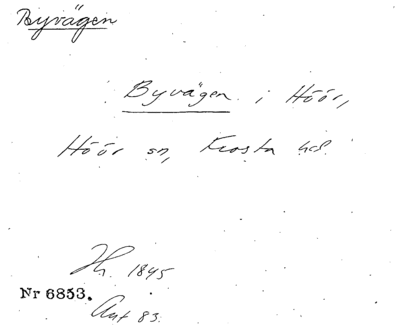 Byvägen
Byvägen i Höör,
Höör sn, Frosta hd.
Hr. 1845
Nr 6853.
Ant 83.